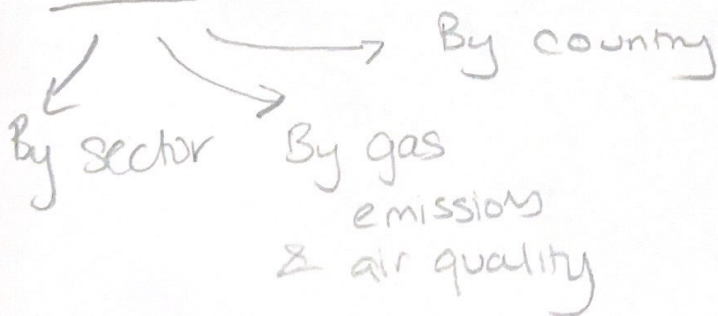 By country
By sector
By gas
emissions
& air quality